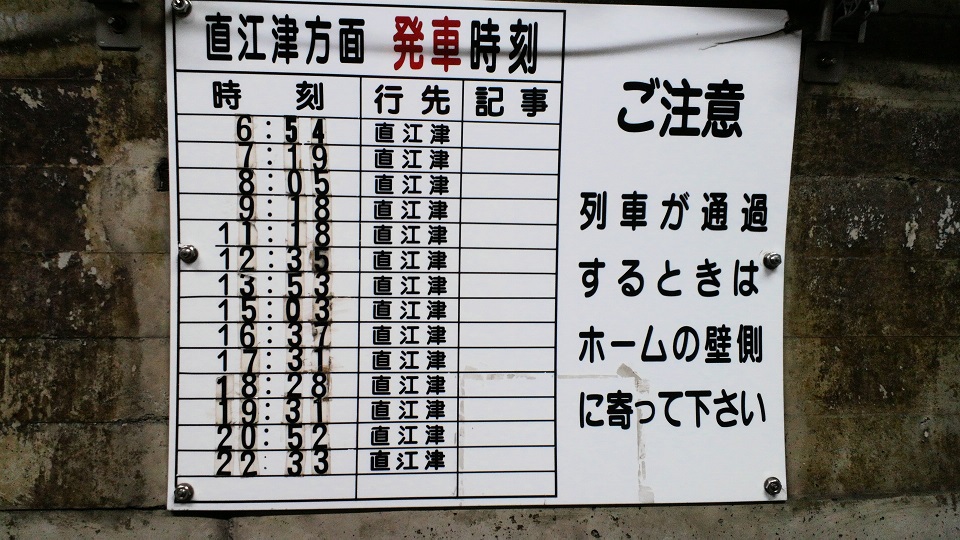 直江津方面 発車時刻
時刻 行先 記事
6:54 直江津
7:19 直江津
8:05 直江津
9:18 直江津
11:18 直江津
12:35 直江津
13:53 直江津
15:03 直江津
16:37 直江津
17:31 直江津
18:28 直江津
19:31 直江津
20:52 直江津
22:33 直江津
ご注意
列車が通過
するときは
ホームの壁側
に寄って下さい